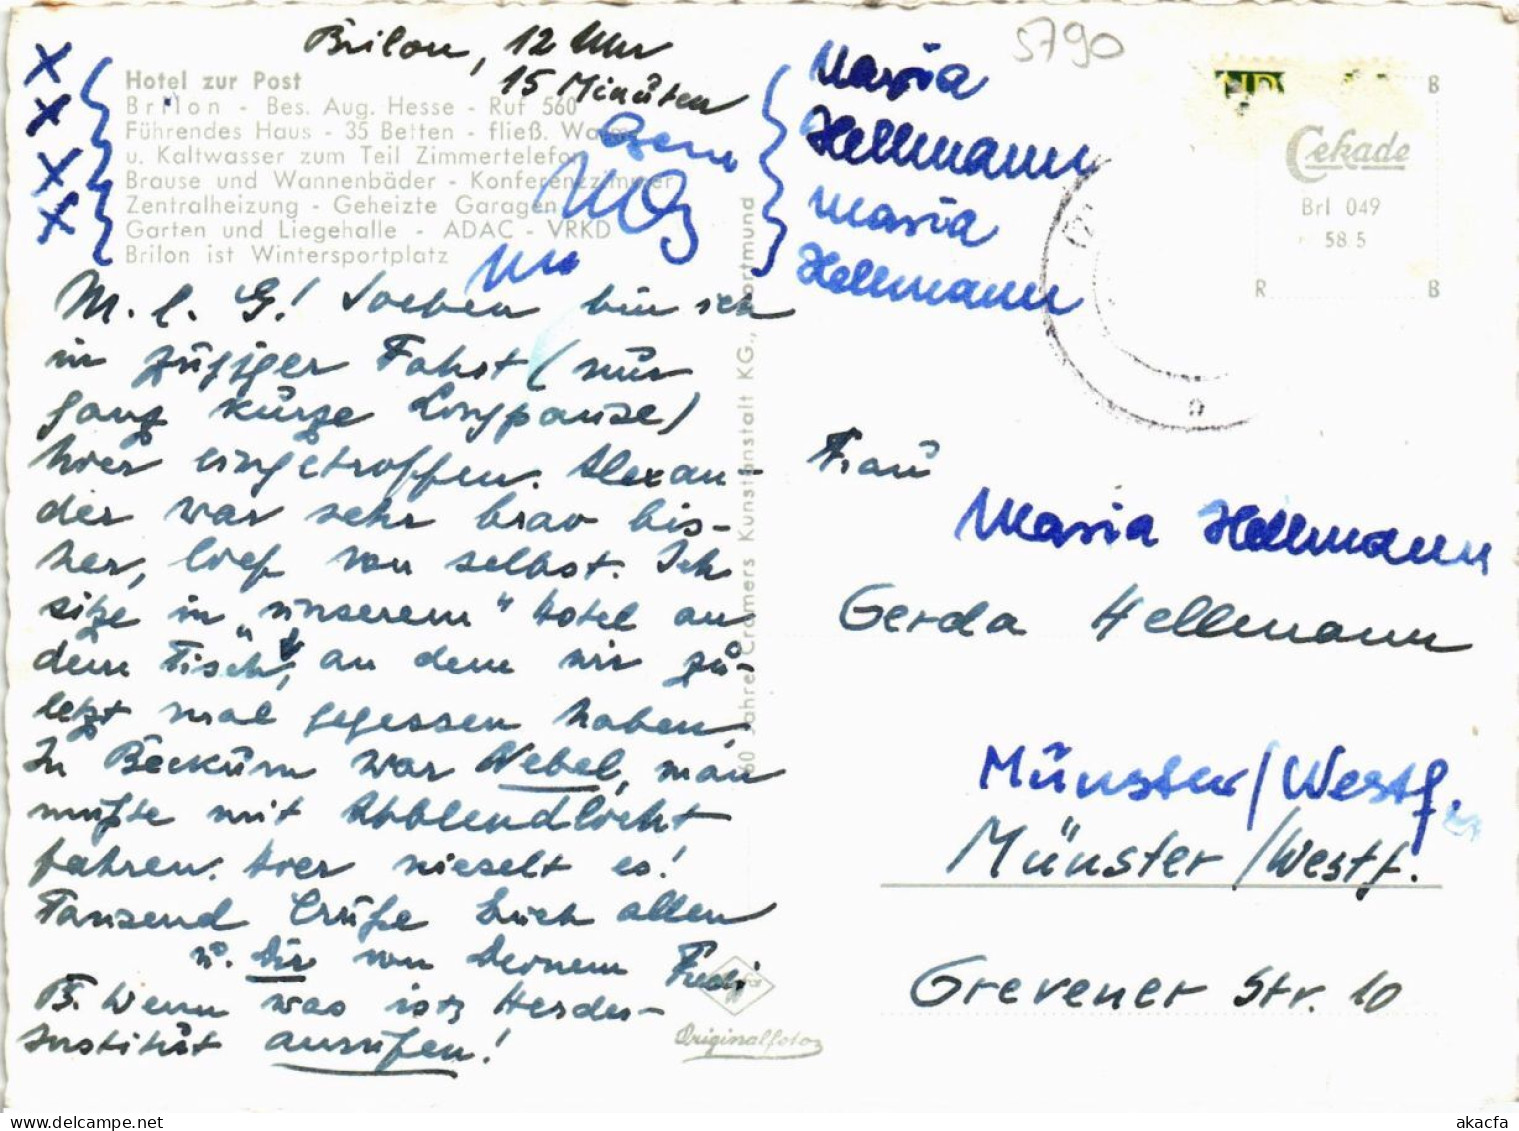 Brilon, 12 Uhr
15 Minuten
5790
Hotel zur Post
Brilon - Bes. Aug. Hesse - Ruf 560
Führendes Haus - 35 Betten - fließ. Warm-
u. Kaltwasser zum Teil Zimmertelefon
Brause und Wannenbäder - Konferenzzimmer
Zentralheizung - Geheizte Garagen
Garten und Liegehalle - ADAC - VRKD
Brilon ist Wintersportplatz
M. l. G.! Soeben bin ich
in zügiger Fahrt (nur
ganz kurze
hier eingetroffen. Alexan-
der war sehr brav bis-
her, lief von selbst. Ich
sitze in „unserem“ Hotel an
dem Tisch, an dem wir zu-
letzt mal gegessen haben,
In Beckum war Nebel, man
mußte mit Abblendlicht
fahren. Hier nieselt es!
Tausend Grüße Euch allen
u. Dir von Deinem Fredi
Wenn was ist, Herder-
Institut anrufen!
60 Jahre Cramers Kunstanstalt KG., Dortmund
Originalfoto
Maria
Hellmann
Maria
Hellmann
Cekade
Brl 049
58 5
B
R
B
Frau
Maria Hellmann
Gerda Hellmann
Münster/Westf.
Münster/Westf.
Grevener Str. 10
akacfa